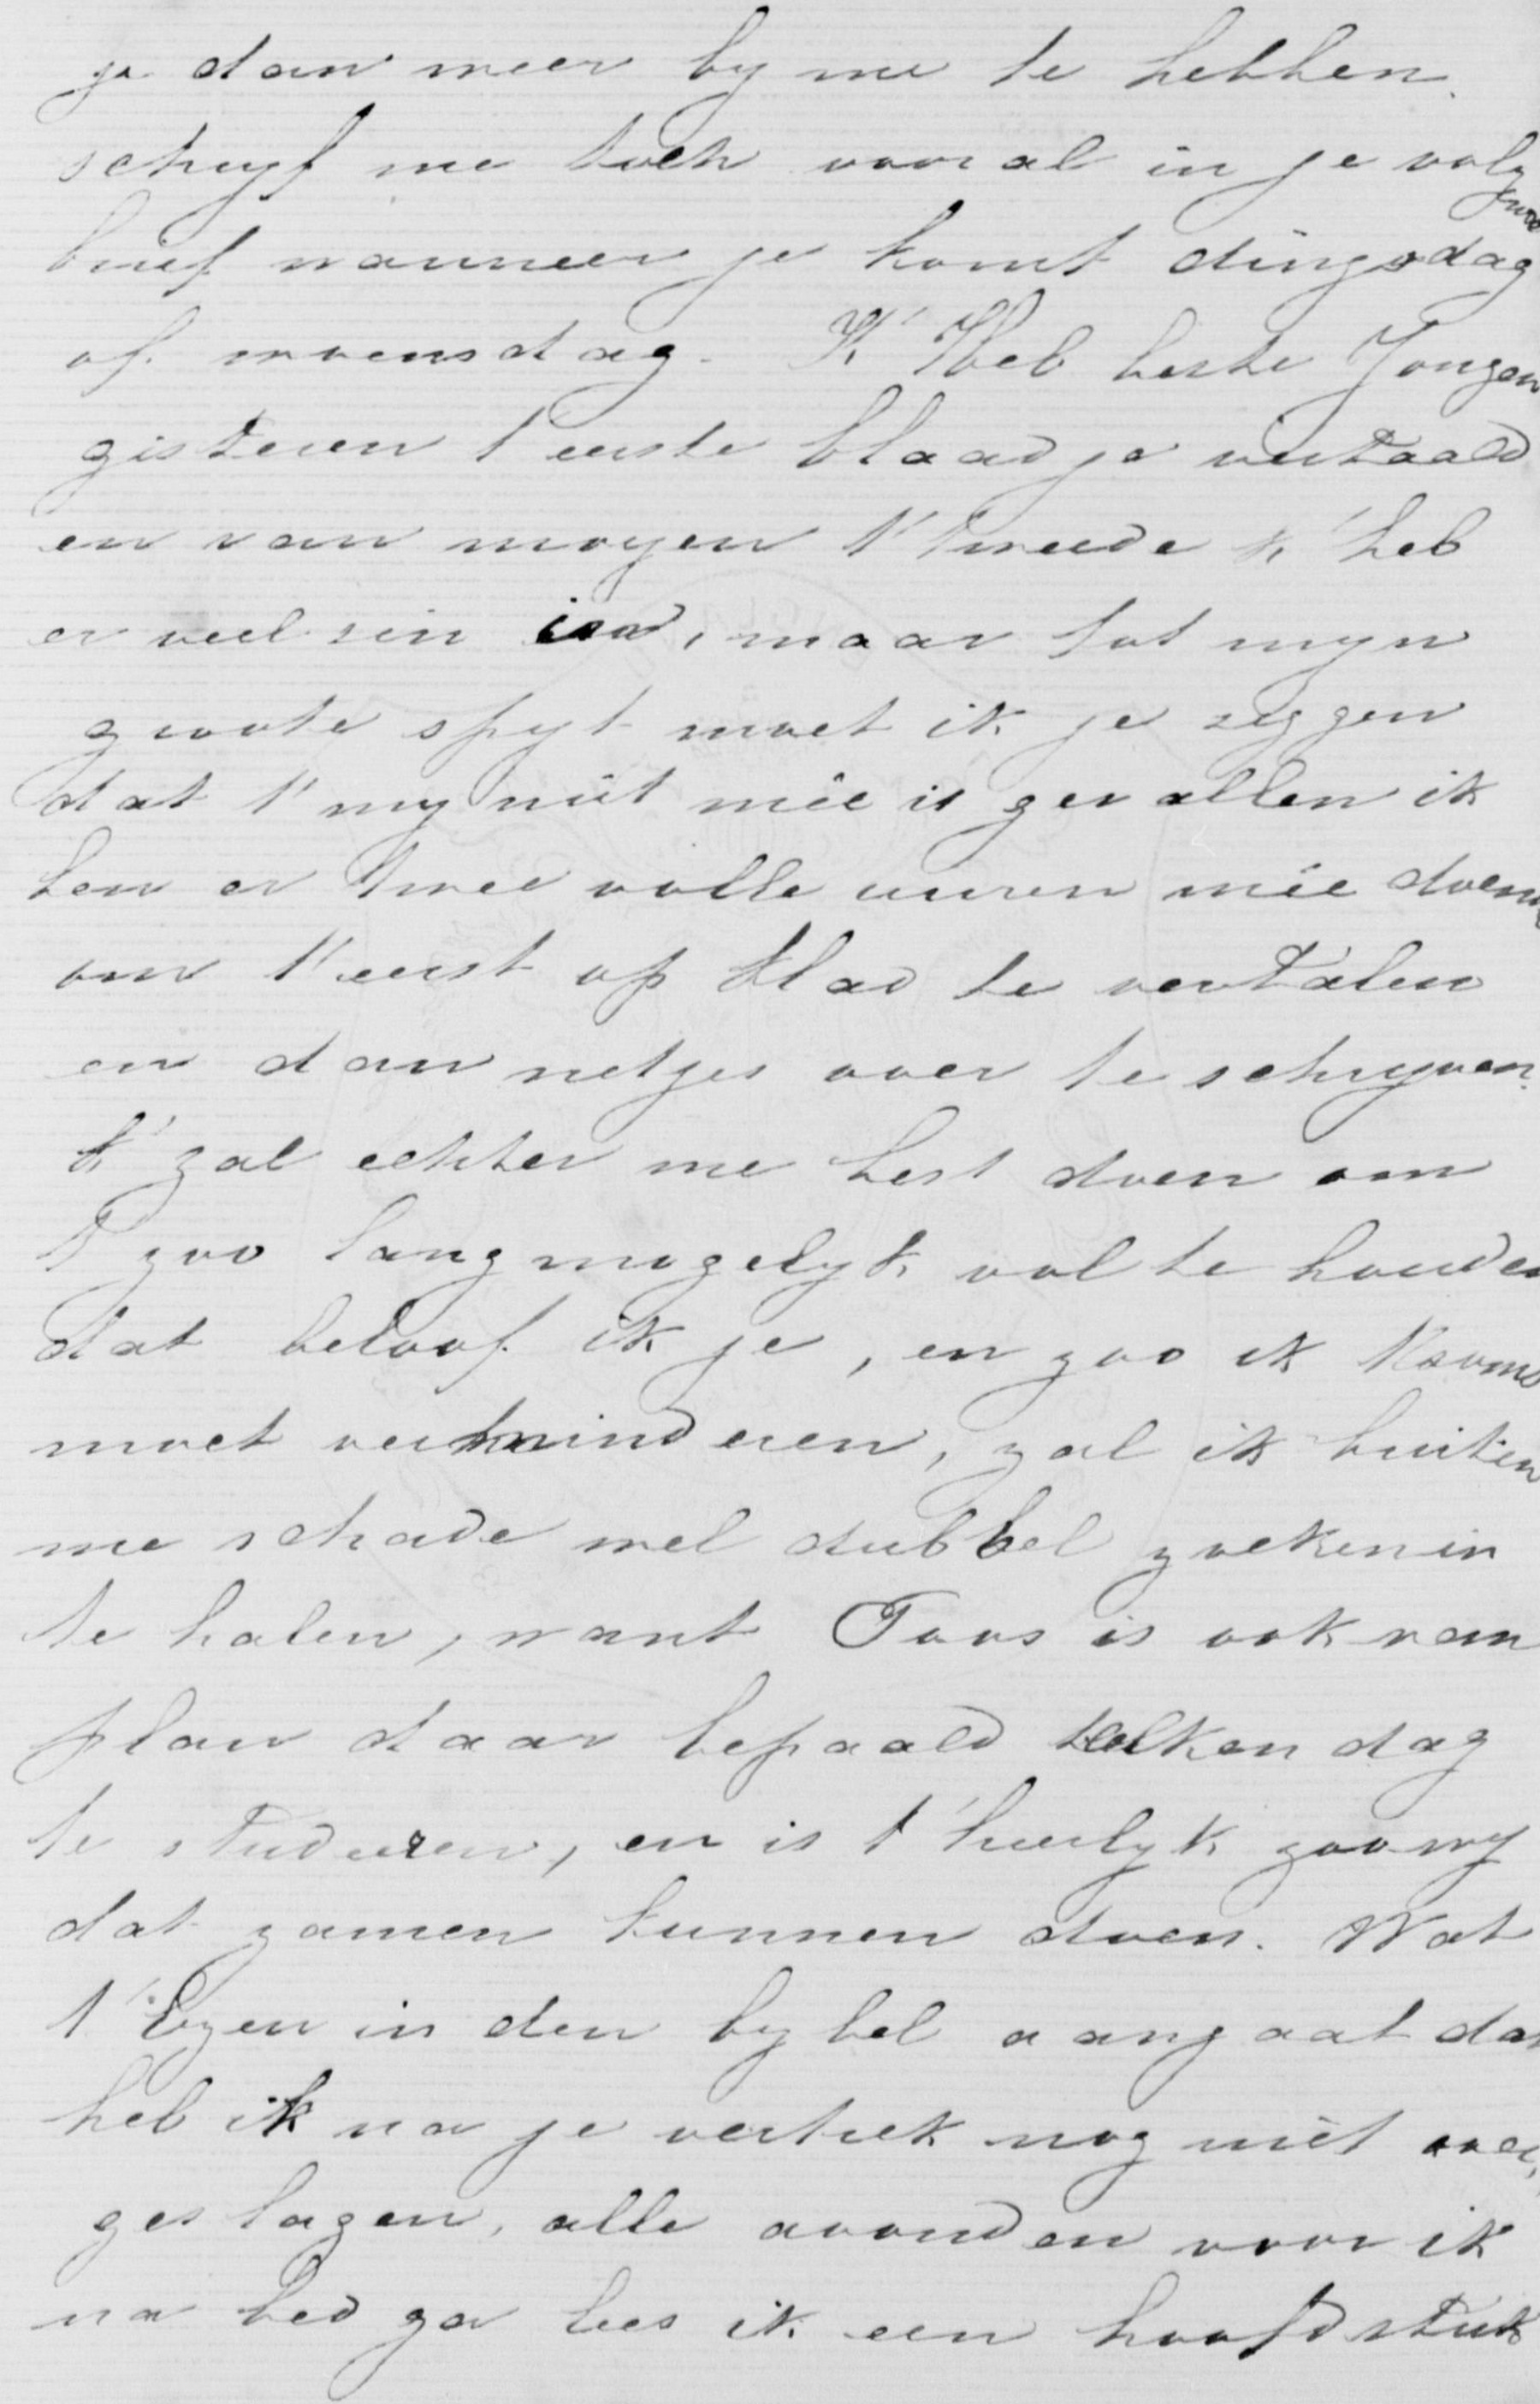 je dan meer by me te hebben.
schryf me toch vooral in je volg
brief wanneer je komt dingsdag
of woensdag. K' Heb beste Jongen
gisteren t eerste blaadje vertaald
en van morgen t' tweede k' heb
er veel zin in, maar tot myn
groote spyt moet ik je zeggen
dat t' my niet meê is gevallen ik
ben er twee volle uuren mêe doende
om t' eerst op klad te vertalen
en dan netjes over te schryven.
k' zal echter me best doen om
t zoo lang mogelyk vol te houden
dat beloof ik je, en zoo ik t soms
moet verminderen, zal ik buiten
me schade wel dubbel zoeken in
te halen, want Toos is ook van
plan daar bepaald elken dag
te studeeren, en is t' heerlyk zoo wy
dat zamen kunnen doen. Wat
t' lezen in den bybel aangaat dat
heb ik na je vertrek nog niet over,
geslagen, alle avonden voor ik
na bed ga lees ik een hoofdstuk